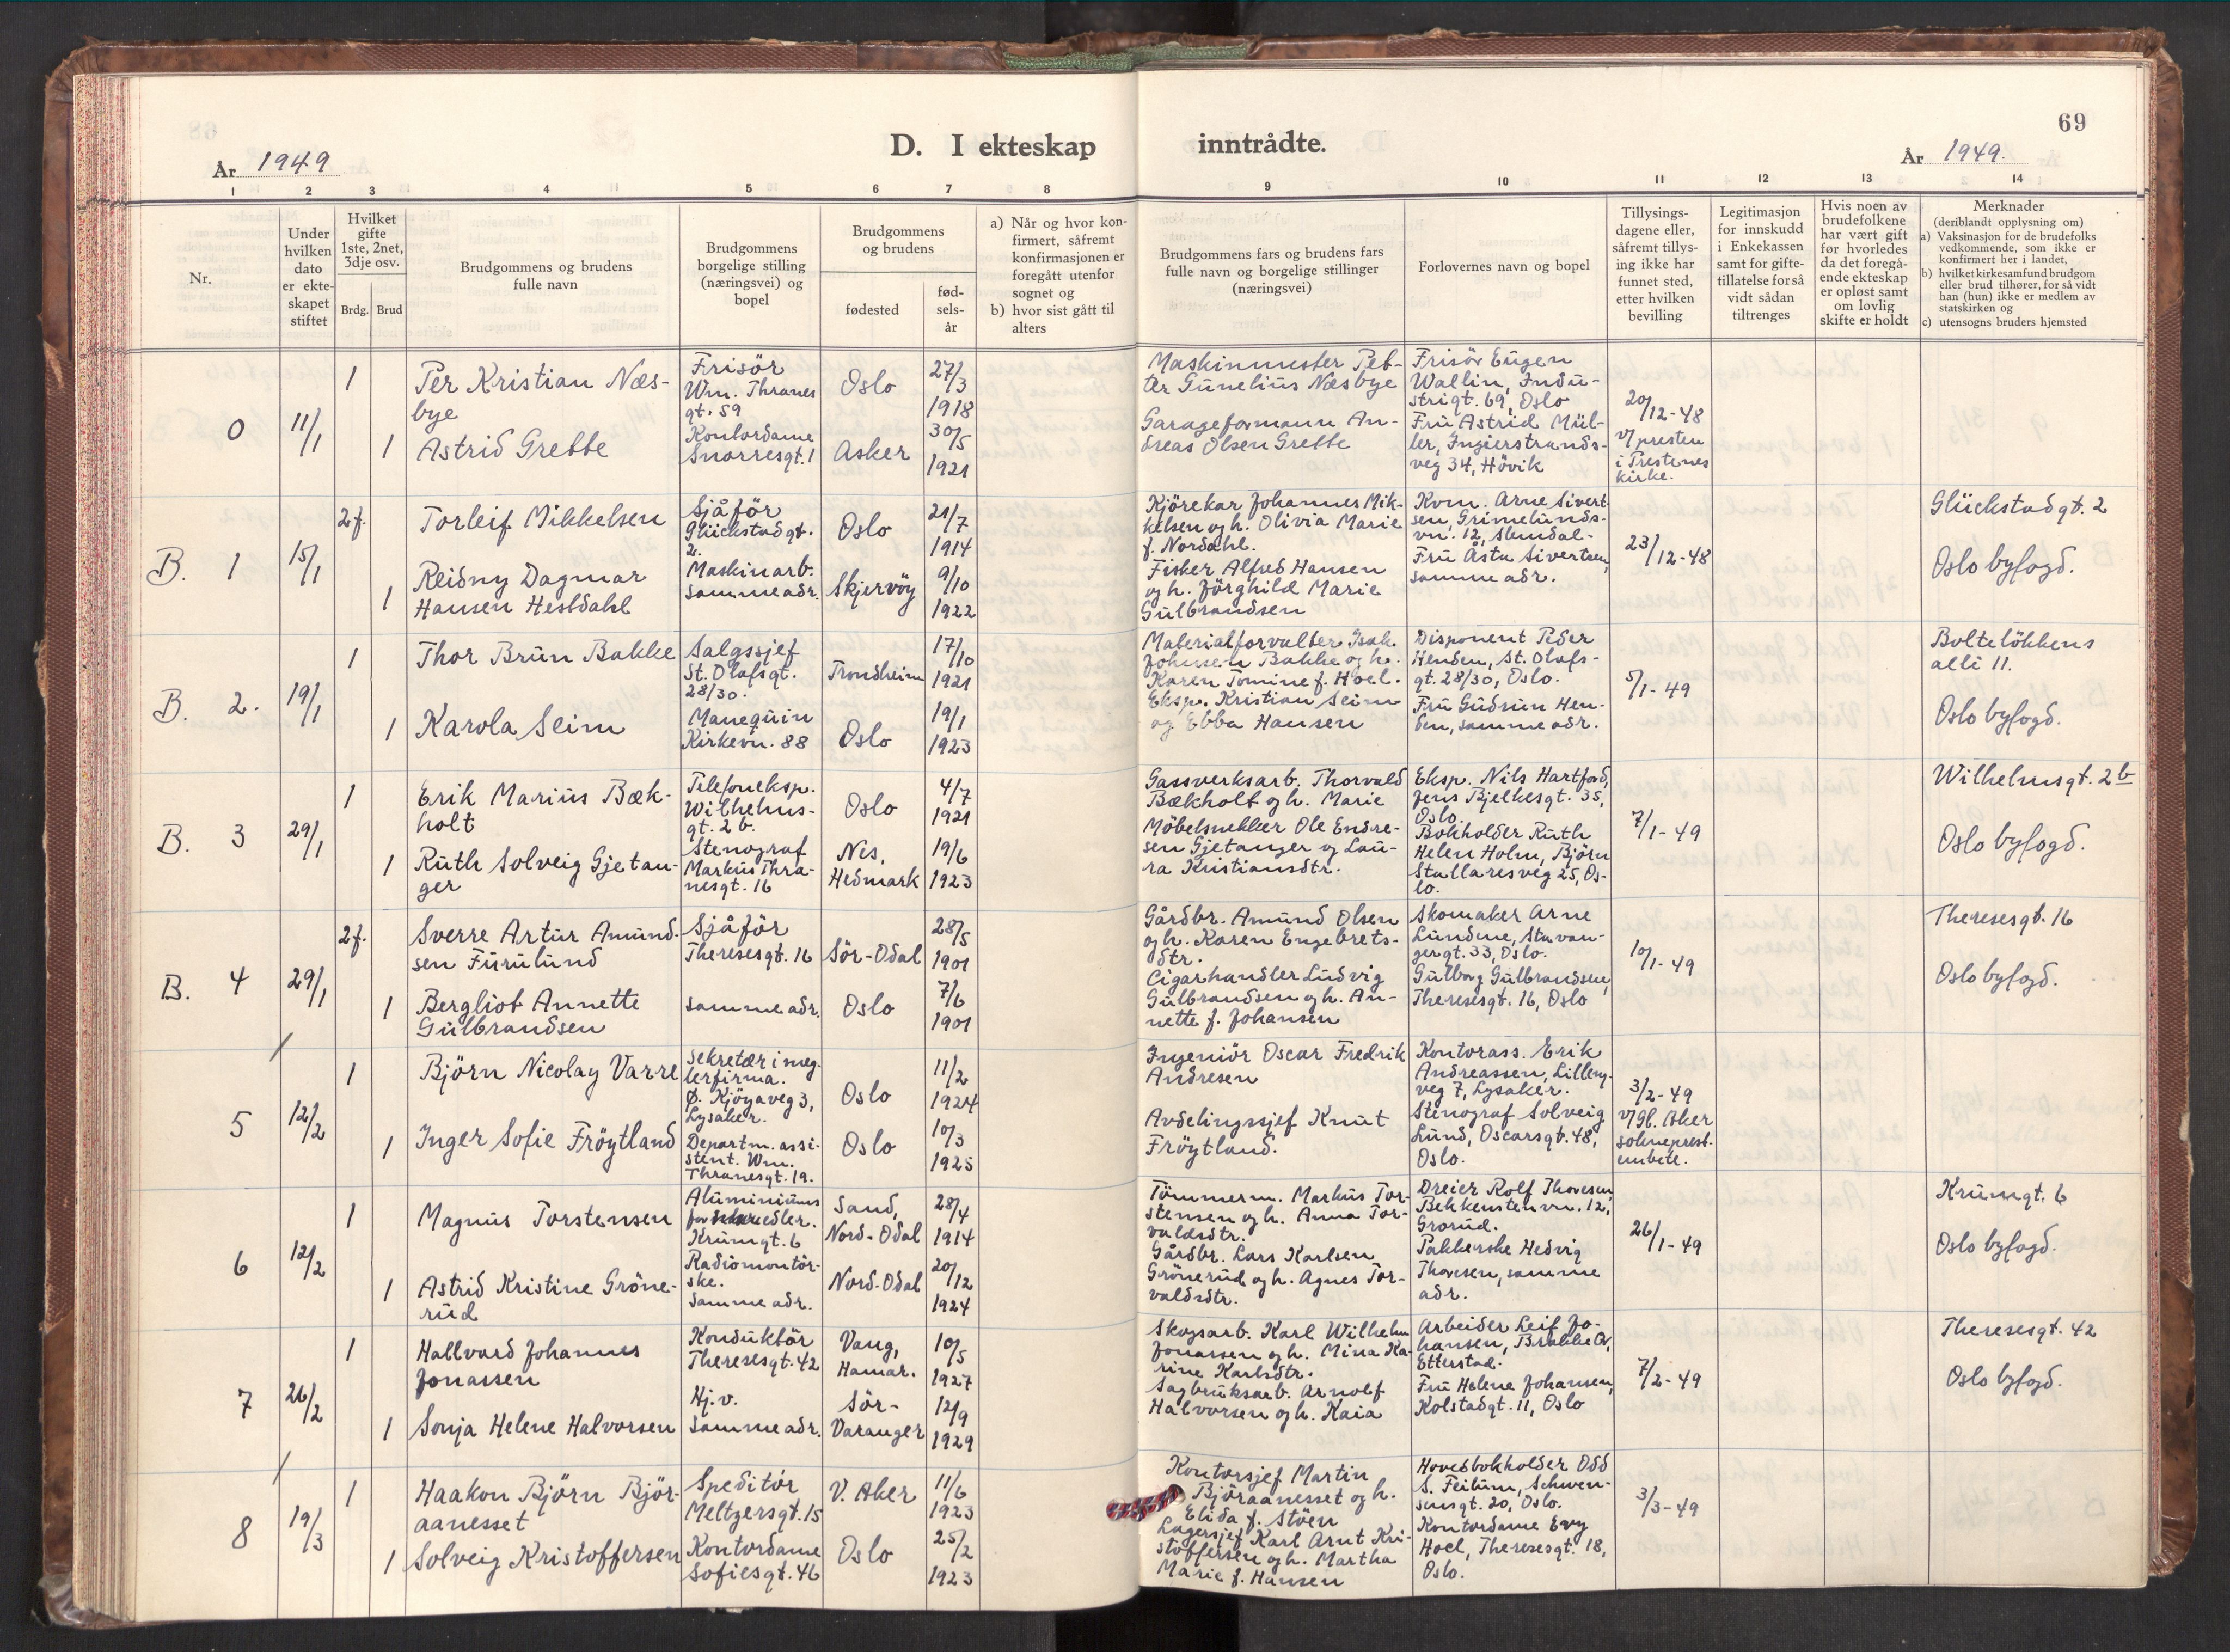 69
D. I ekteskap inntrådte.
År 1949
År 1949.
1 2 3 4 5 6 7 8 9 10 11 12 13 14
Nr.
Under
hvilken
dato
er ekte-
skapet
stiftet
Hvilket
gifte
1ste, 2net,
3dje osv.
Brdg. Brud
Brudgommens og brudens
fulle navn
Brudgommens
borgelige stilling
(næringsvei) og
bopel
Brudgommens
og brudens
fødested
fød-
sels-
år
a) Når og hvor kon-
firmert, såfremt
konfirmasjonen er
foregått utenfor
sognet og
b) hvor sist gått til
alters
Brudgommens fars og brudens fars
fulle navn og borgelige stillinger
(næringsvei)
Forlovernes navn og bopel
Tillysings-
dagene eller,
såfremt tillys-
ing ikke har
funnet sted,
etter hvilken
bevilling
Legitimasjon
for innskudd
i Enkekassen
samt for gifte-
tillatelse for så
vidt sådan
tiltrenges
Hvis noen av
brudefolkene
har vært gift
før hvorledes
da det foregå-
ende ekteskap
er opløst samt
om lovlig
skifte er holdt
Merknader
(deriblandt opplysning om)
a) Vaksinasjon for de brudefolks
vedkommende, som ikke er
konfirmert her i landet,
b) hvilket kirkesamfund brudgom
eller brud tilhører, for så vidt
han (hun) ikke er medlem av
statskirken og
c) utensogns bruders hjemsted
0
11/1
1
Per Kristian Næs-
bye
Frisör
Wm. Thranes
gt. 59
Oslo
27/3
1918
1
Astrid Grette
Kontordame
Snorresgt. 1
Asker
30/5
1921
Maskinmester Pet-
ter Gunelius Næsbye
Garageformann An-
dreas Olsen Grette
Frisör Eugen
Wallin, Indu-
strigt. 69, Oslo
Fru Astrid Mül-
ler, Ingierstrands-
veg 34, Hövik
20/12-48
v/presten
i Prestenes
kirke.
B. 1
15/1
2f.
Torleif Mikkelsen
Sjåför
Glückstadgt.
2.
Oslo
21/7
1914
1
Reidny Dagmar
Hansen Hestdahl
Maskinarb.
samme adr.
Skjervöy
9/10
1922
Kjörekar Johannes Mik-
kelsen og h. Olivia Marie
f. Nordahl.
Fisker Alfred Hansen
og h. Jörghild Marie
Gulbrandsen
Kom. Arne Sivert
sen, Grimelunds-
vn. 12, Slemdal-
Fru Åsta Sivertsen,
samme adr.
23/12-48
Glückstadgt. 2
Oslo byfogd.
B. 2.
19/1
1
Thor Brun Bakke
Salgssjef
St. Olafsgt.
28/30.
Trondheim
17/10
1921
1
Karola Seim
Manequin
Kirkevn. 88
Oslo
19/1
1923
Materialforvalter Isak
Johnsen Bakke og h.
Karen Tomine f. Hoel.
Eksp. Kristian Seim
og Ebba Hansen
Disponent Peder
Henden, St. Olafs-
gt. 28/30, Oslo.
Fru Gudrun Hen-
den, samme adr.
5/1-49
Bolteløkkens
alli 11.
Oslo byfogd.
B. 3
29/1
1
Erik Marius Bæk-
holt
Telefoneksp.
Wilhelms-
gt. 2 b.
Oslo
4/7
1921
1
Ruth Solveig Gjetan-
ger
Stenograf
Markus Thra-
nesgt. 16
Nes,
Hedmark
19/6
1923
Gassverksarb. Thorvald
Bækholt og h. Marie
Möbelsnekker Ole Endre-
sen Gjetanger og Lau-
ra Kristiansdtr.
Eksp. Nils Hartford,
Jens Bjelkesgt. 35,
Oslo.
Bokholder Ruth
Helen Holm, Björn
Stallaresveg 25, Os-
lo.
7/1-49
Wilhelmsgt. 2b
Oslo byfogd.
B. 4
29/1
2f.
Sverre Artur Amund-
sen Furulund
Sjåför
Theresesgt. 16
Sör-Odal
28/5
1901
1
Bergliot Annette
Gulbrandsen
samme adr.
Oslo
7/6
1901
Gårdbr. Amund Olsen
og h. Karen Engebrets-
dtr.
Cigarhandler Ludvig
Gulbrandsen og h. An-
nette f. Johansen
Skomaker Arne
Lundene, Stavan-
gergt. 33, Oslo.
Gulborg Gulbrandsen,
Theresesgt. 16, Oslo
10/1-49
Theresesgt. 16
Oslo byfogd.
5
12/2
1
Björn Nicolay Varre
Sekretær i meg-
lerfirma.
Ø. Kjöyaveg 3,
Lysaker.
Oslo
11/2
1924
1
Inger Sofie Fröytland
Departm. assi-
stent. Wm.
Thranesgt. 19.
Oslo
10/3
1925
Ingeniör Oscar Fredrik
Andresen
Avdelingssjef Knut
Fröytland.
Kontorass. Erik
Andreassen, Lilleng-
veg 7, Lysaker.
Stenograf Solveig
Lund, Oscarsgt. 48,
Oslo.
3/2-49
v/gl. Aker
sokneprest-
embete.
6
12/2
1
Magnus Torstensen
Aluminiums
Krumgt. 6
Sand,
Nord-Odal
28/4
1914
1
Astrid Kristine Gröne-
rud
Radiomontör-
ske.
Samme adr.
Nord-Odal
20/12
1924
Tömmerm. Markus Tor-
stensen og h. Anna Tor-
valdsdtr.
Gårdbr. Lars Karlsen
Grönerud og h. Agnes Tor-
valdsdtr.
Dreier Rolf Thoresen,
Bekkestenvn. 12,
Grorud.
Pakkerske Hedvig
Thoresen, samme
adr.
26/1-49
Krumgt. 6
Oslo byfogd.
7
26/2
1
Hallvard Johannes
Jonassen
Konduktör
Theresesgt. 42
Vang,
Hamar.
10/5
1927
1
Sonja Helene Halvorsen
Hj.v.
samme adr.
Sör-
Varanger
12/9
1929
Skogsarb. Karl Wilhelm
Jonassen og h. Mina Ka-
rine Karlsdtr.
Sagbruksarb. Arnolf
Halvorsen og h. Kaia
Arbeider Leif Jo-
hansen, Brakke
Etterstad.
Fru Helene Johansen,
Kolstadgt. 11, Oslo
7/2-49
Theresesgt. 42
Oslo byfogd.
8
19/3
1
Haakon Björn Björ-
aanesset
Speditör
Meltzersgt. 15
V. Aker
11/6
1923
1
Solveig Kristoffersen
Kontordame
Sofiesgt. 46
Oslo
25/2
1923
Kontorsjef Martin
Björaanesset og h.
Elida f. Stöen
Lagersjef Karl Arnt Kri-
stoffersen og h. Martha
Marie f. Hansen
Hovedbokholder Odd
S. Feilum, Schwen-
sensgt. 20, Oslo.
Kontordame Evy
Hoel, Theresesgt. 18,
Oslo.
3/3-49